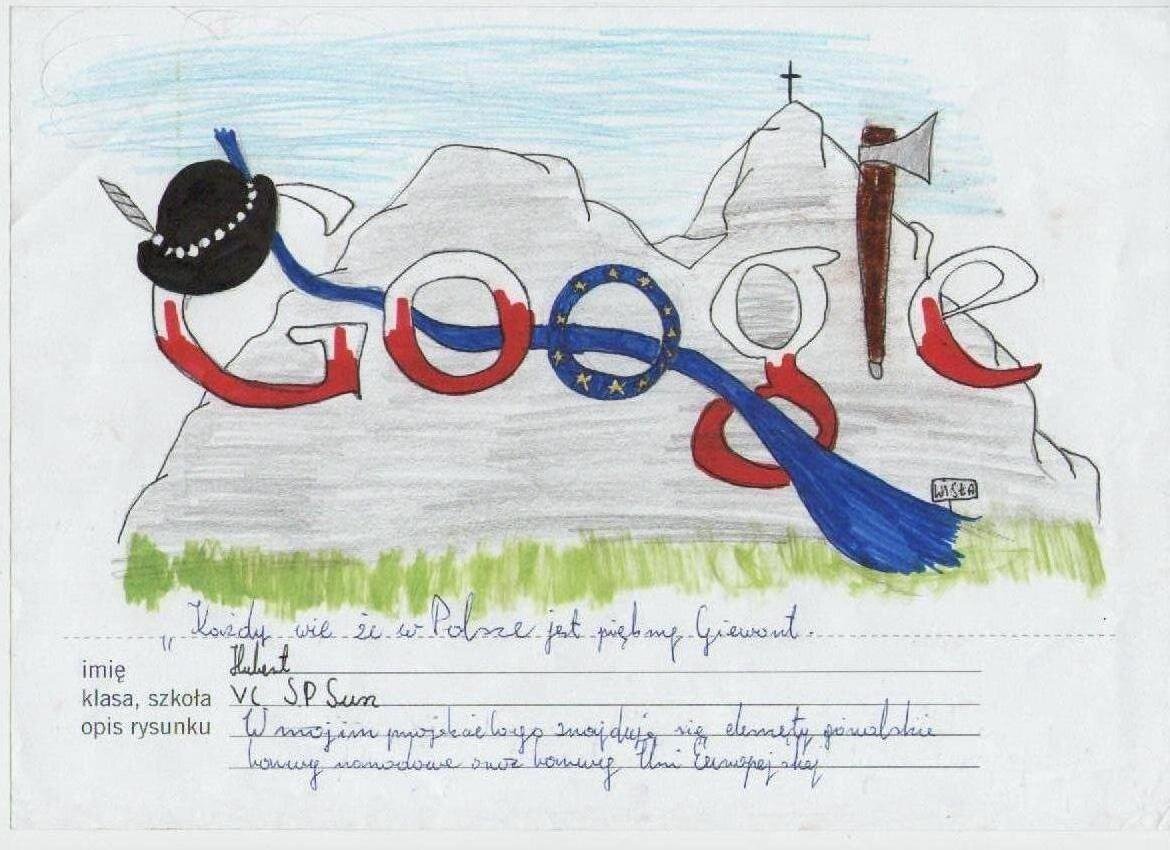 Google
WISŁA
„Każdy wie że w Polsce jest piękny Giewont.
imię Hubert
klasa, szkoła VC SP Susz
opis rysunku W mojim projekcie logo znajdują się elemęty góralskie
barwy narodowe oraz barwy Uni Europejskiej